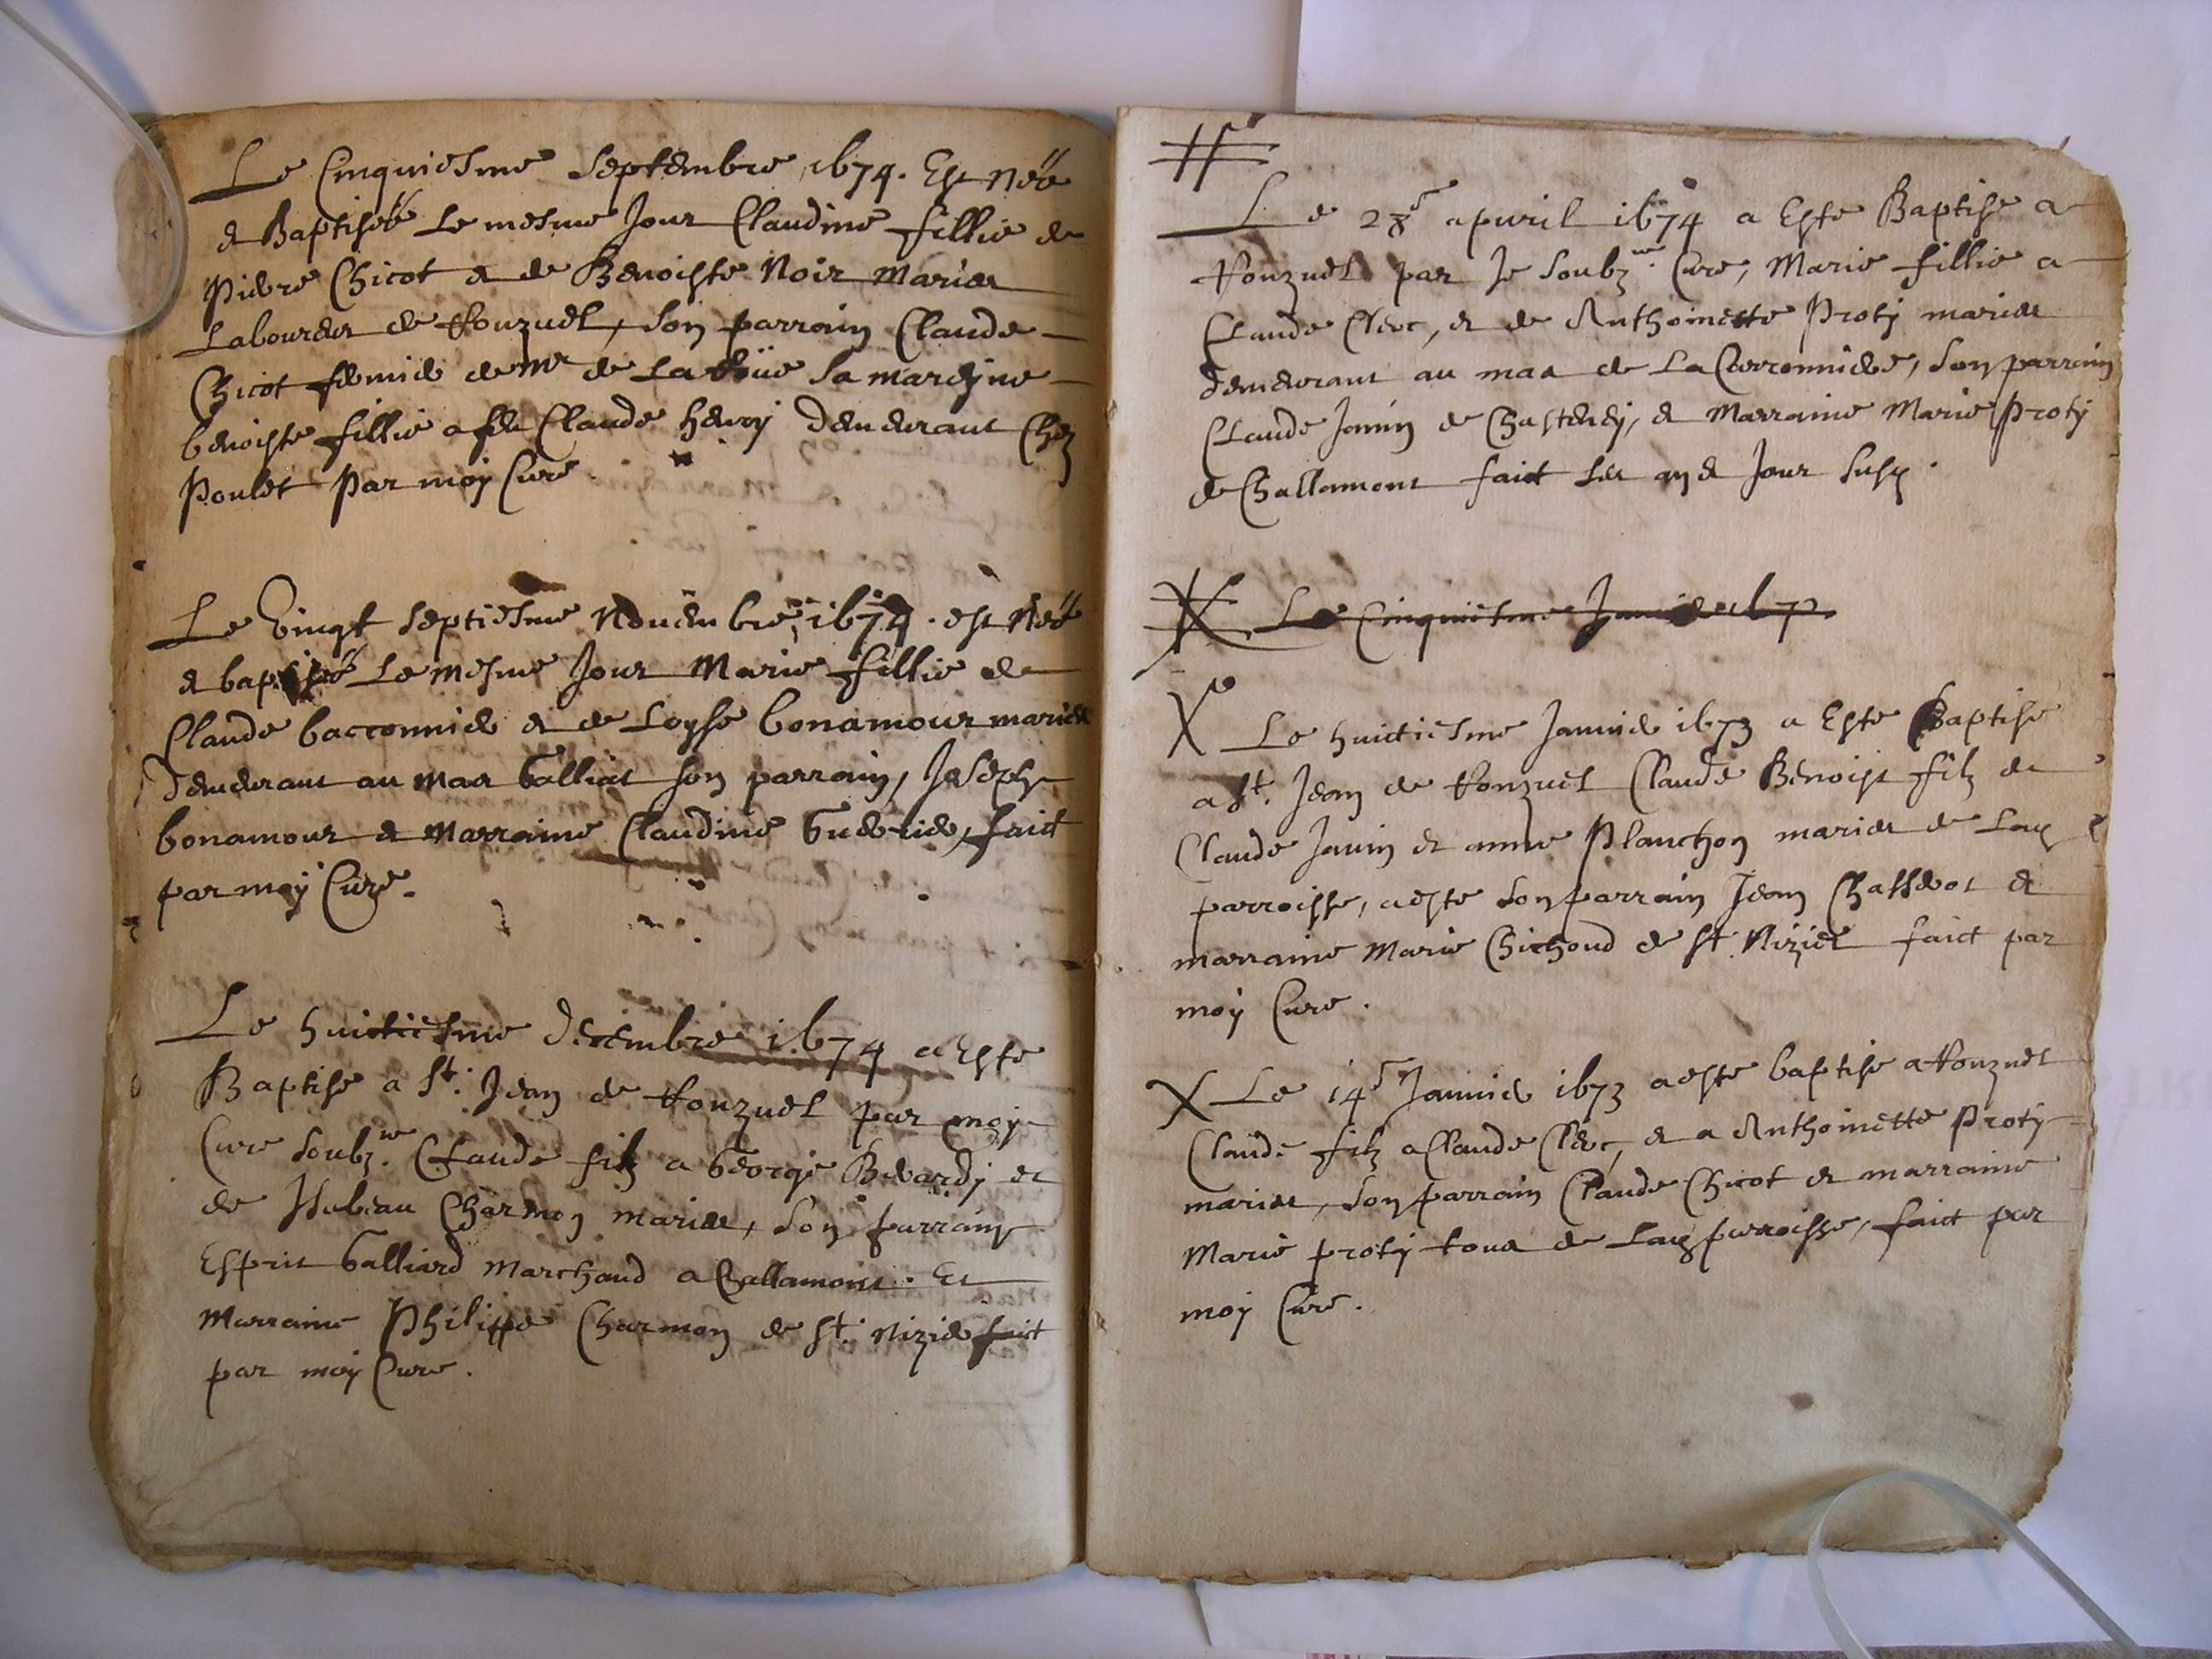 Le Cinquiesme Septembre 1674. Est Néé
& Baptiséé Le mesme Jour Claudine fillie de
Pierre Chicot & de Benoiste Noir Mariés
Laboureur de Ronzuel, Son parrain Claude
Chicot fermier de Mr de La Sa mareyne
benoiste fillie a feu Claude henry Demeurant Chez
Poulet Par moy Curé
Le Vingt Septiesme Nouembre, 1674. est Néé
& baptiséé Le mesme Jour Marie fillie de
Claude baccounier & de Loyse bonamour mariés
Demeurant au Mas Galliat son parrain, Joseph
bonamour & Marraine Claudine fait
par moy Curé.
Le huictiesme Decembre 1674 a Esté
Baptisé a St. Jean de Ronzuel par moy
Curé soubz.né Claude filz a George Berardy et
de Isabeau Charmon mariés, Son parrain
Esprit Galliard Marchand a Challamont. Et
Marraine Philippe Charmon de St. Nizier fait
par moy Curé.
Le 28e apuril 1674 a Esté Baptisé a
Ronzuel par Je Soubz.né Curé, Marie fillie a
Claude Clerc, & de Anthoinette Proty mariés
Demeurant au mas de La Carronniere, Son parrain
Claude Janin de Chastenay, & Marraine Marie Proty
de Challamont faict Les an & Jour Susd.
Le Cinquiesme Januier 167
Le huictiesme Januier 1673 a Esté Baptisé
a St. Jean de Ronzuel Claude Benoist filz de
Claude Janin et anne Planchon mariés de Lad
parroisse, a esté Son parrain Jean Chassevot et
marraine Marie Chichoud de St. Nizier faict par
moy Curé.
Le 14e Januier 1673 a esté baptisé a Ronzuel
Claude filz a Claude Clerc, & a Anthoinette Proty
mariés, Son parrain Claude Chicot et marraine
Marie proty tous de Lad parroisse, faict par
moy Curé.